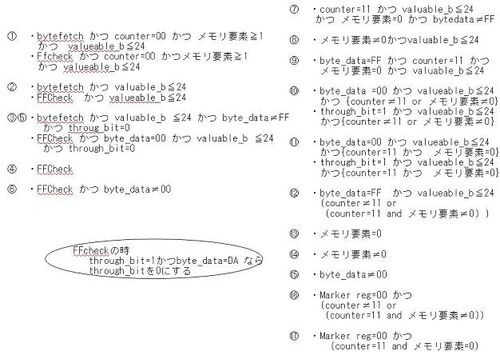 ① ・bytefetch かつ counter=00 かつ メモリ要素≧1
かつ valueable_b≦24
・Ffcheck かつ counter=00 かつメモリ要素≧1
かつ valuable_b≦24
② ・bytefetch かつ valuable_b≦24
・FFCheck かつ valueable_b≦24
③⑤ ・bytefetch かつ valuable_b ≦24 かつ byte_data≠FF
かつ throug_bit=0
・FFCheck かつ byte_data=00 かつ valuable_b ≦24
かつ through_bit=0
④ ・FFCheck
⑥ ・FFCheck かつ byte_data≠00
FFcheckの時
through_bit=1かつbyte_data=DA なら
through_bitを0にする
⑦ ・counter=11 かつ valuable_b≦24
かつ メモリ要素=0 かつ bytedata≠FF
⑧ ・メモリ要素≠0かつvaluable_b≦24
⑨ ・byte_data=FF かつ counter=11 かつ
メモリ要素=0 かつ valuable_b≦24
⑩ ・byte_data =00 かつ valuable_b≦24
かつ {counter≠11 or メモリ要素≠0}
・through_bit=1 かつ valuable_b≦24
かつ{counter≠11 or メモリ要素≠0}
⑪ ・byte_data=00 かつ valuable_b≦24
かつ{counter=11 かつ メモリ要素=0}
・through_bit=1 かつ valuable_b≦24
かつ{counter=11 かつ メモリ要素=0}
⑫ ・byte_data=FF かつ valueable_b≦24
(counter≠11 or
(counter=11 and メモリ要素≠0) )
⑬ ・メモリ要素=0
⑭ ・メモリ要素≠0
⑮ ・byte_data≠00
⑯ ・Marker reg=00 かつ
(counter≠11 or
(counter=11 and メモリ要素≠0))
⑰ ・Marker reg=00 かつ
(counter=11 and メモリ要素=0)